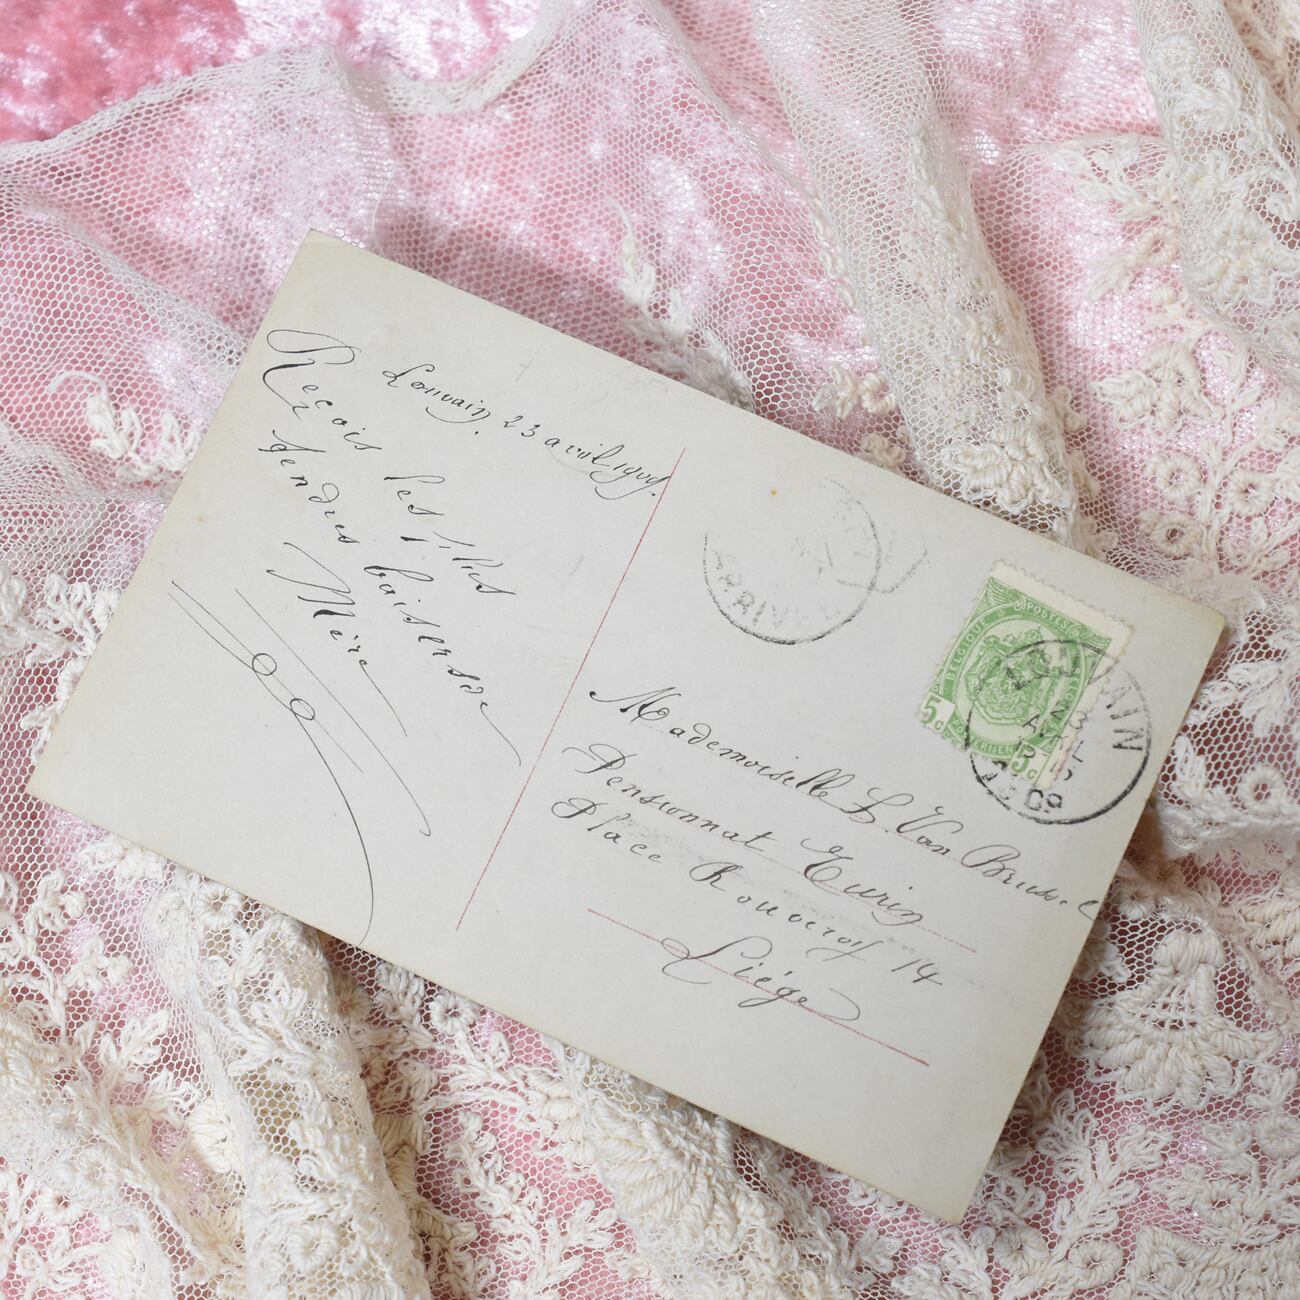 Louvain, 23 avril 1909.
Reçois les plus
tendres baisers de
Mère
ARRIV
POSTES
BELGIQUE
5c
5c
LOUVAIN
23
AVRIL
1909
Mademoiselle L. Van
Pensionnat
Place Rouveroy 14
Liége